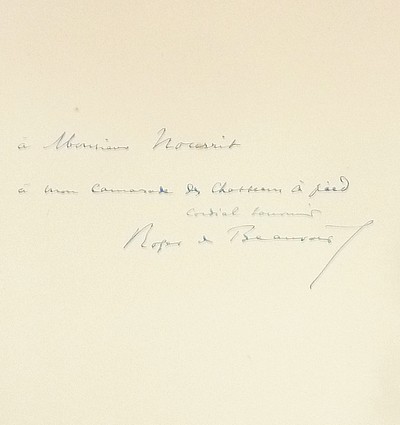 à Monsieur Nourrit
à mon camarade des Chasseurs à pied
cordial souvenir
Roger de Beauvoir